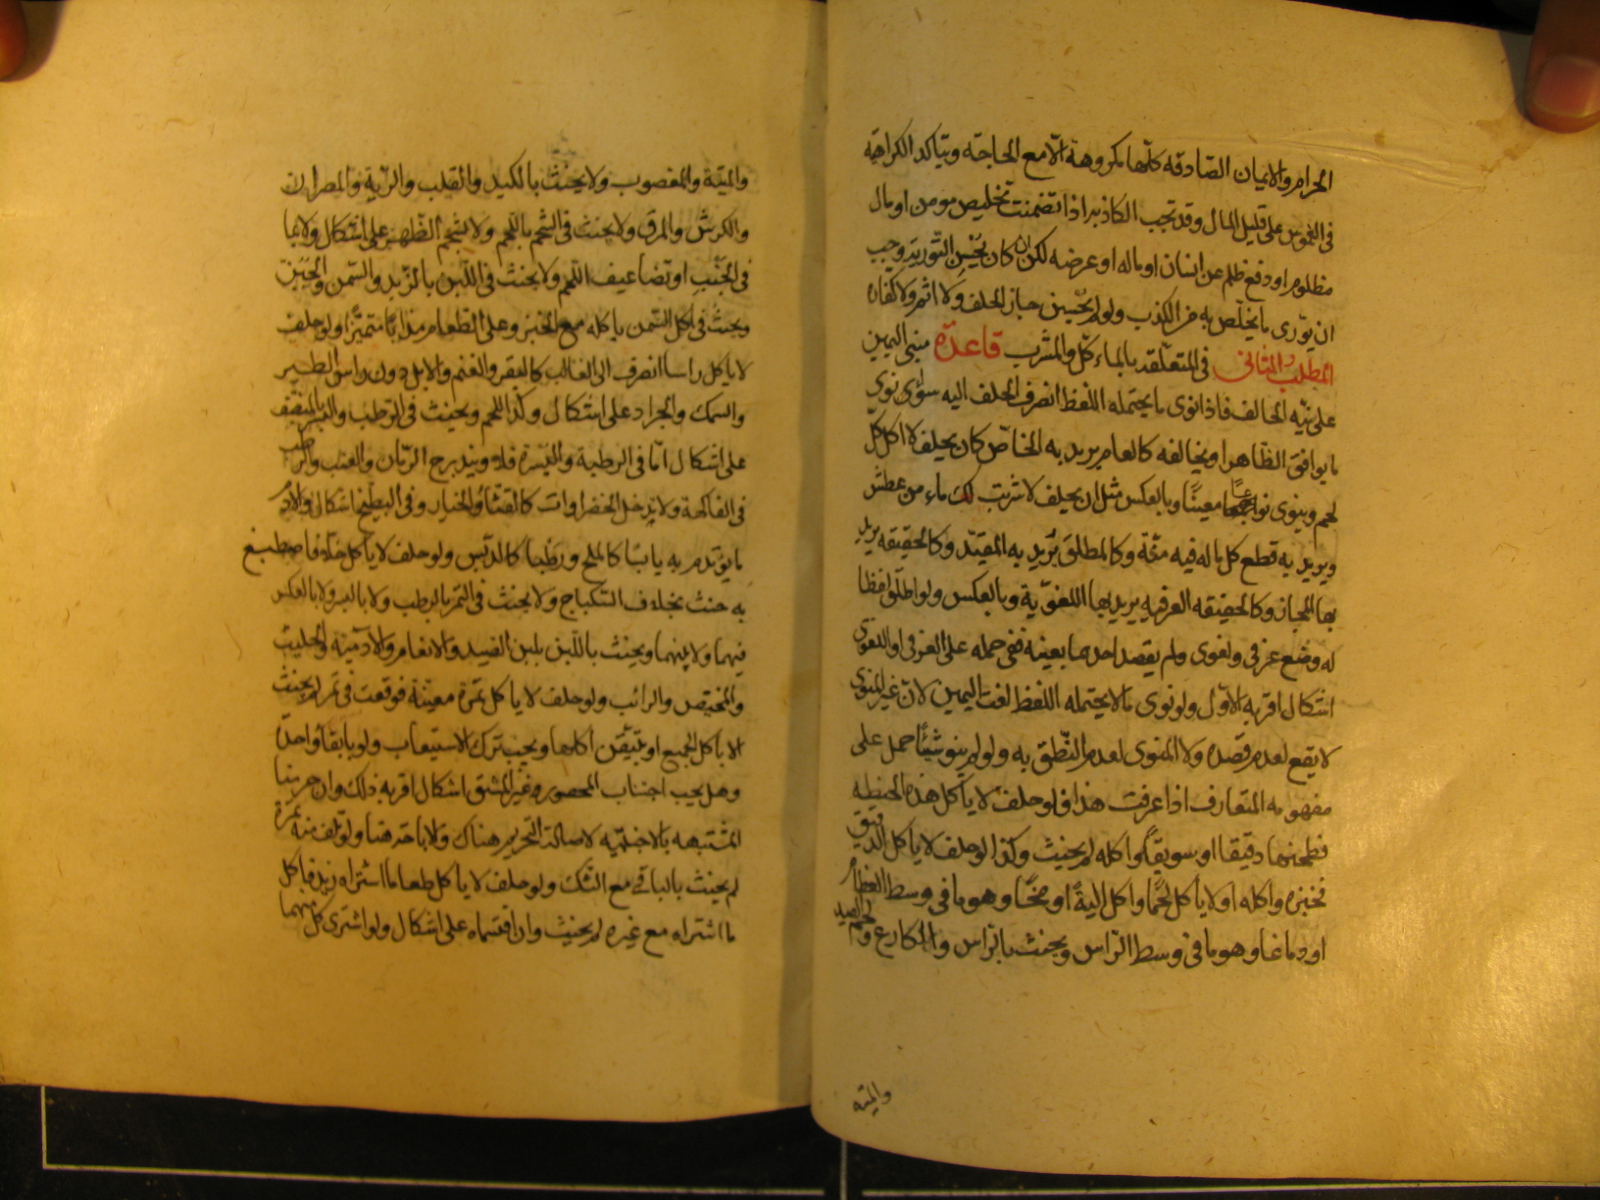 الحرام والايمان الصادقه كلّها مكروهة الّا مع الحاجة ويتاكد الكراهة
فى الغموس على قليل المال وقد تجب الكاذبه اذا تضمنت تخليص مومن او مال
مظلوم او دفع ظلم عن انسان او ماله او عرضه لكن ان كان يُحْسِن التورية وجب
ان يورّى ما يخلّص به من الكذب ولو لم يحسن جاز الحلف ولا اثم ولا كفارة
المطلب الثانى فى المتعلقه بالماكل والمشرب قاعدة مبنى اليمين
على نيّة الحالف فاذا نوى ما يحتمله اللفظ انصرف الحلف اليه سواء نوى
ما يوافق الظاهر او يخالفه كالعام يريد به الخاصّ كان يحلف لا اكل كلّ
لحم وينوى نوعًا معينًا وبالعكس مثل ان يحلف لا شربت لك ماء من عطش
ويريد به قطع كل ماله فيه منّة وكالمطلق يُريد به المقيّد وكالحقيقه يريد
بها المجاز وكالحقيقه العرفيه يريد بها اللغويّة وبالعكس ولو اطلق لفظا
له وضع عرفى ولغوى ولم يقصد احدهما بعينه ففى حمله على العرفى او اللغوى
اشكال اقربه الاوّل ولو نوى ما لا يحتمله اللفظ لغت اليمين لانّ غير المنوى
لا يقع لعدم قصده ولا المنوى لعدم النّطق به ولو لم ينو شيئًا حمل على
مفهومه المتعارف اذا عرفت هذا فلو حلف لا ياكل هذه الحنطه
فطحنها دقيقا او سويقًا واكله لم يحنث وكذا لو حلف لا ياكل الدقيق
فخبزه واكله او لا ياكل لحمًا واكل اليةً او مخًا وهو ما فى وسط العظام
او دماغا وهو ما فى وسط الرّاس ويحنث بالرّاس والكارع ولحم الصيد
والميته
والميتة والمغصوب ولا يحنث بالكبد والقلب والرّية والمصران
والكرش والمرق ولا يحنث فى الشحم باللحم ولا بشحم الظهر على اشكال ولا بما
فى الجَنْبِ او تضاعيف اللحم ولا يحنث فى اللّبن بالزّبد والسّمن والجبن
ويحنث فى اكل السّمن باكله مع الخبز وعلى الطعام مذابًا متميّزا ولو حلف
لا ياكل راسا انصرف الى الغالب كالبقر والغنم والابل دون راس الطير
والسمك والجراد على اشكال وكذا اللحم ويحنث فى الرّطب والبسر بالمنصّف
على اشكال امّا فى الرطبة والبسرة فلا ويندرج الرّمان والعنب والرّطب
فى الفاكهة ولا يدخل الخضراوات كالقثاء والخيار وفى البطيخ اشكال والادم
ما يؤتدم به يابسًا كالملح ورطبا كالدّبس ولو حلف لا ياكل خلّا فاصطبغ
به حنث بخلاف السّكباج ولا يحنث فى التمر بالرطب ولا بالبسر ولا بالعكس
فيهما ولا بينهما ويحنث باللّبن بلبن الصيد والانعام والادميّة والحليب
والمخيض والرائب ولو حلف لا ياكل تمرة معيّنة فوقعت فى تمر لم يحنث
الا باكل الجميع او بتيقّن اكلها ويجب ترك الاستيعاب ولو بابقاء واحدة
وهل يجب اجتناب المحصور وغير المشق اشكال اقربه ذلك وان حرّمنا
المشتبهه بالاجنبيّه لاصالة التحريم هناك والاباحة هنا ولو تلف منه تمرة
لم يحنث بالباقى مع الشك ولو حلف لا ياكل طعاما اشتراه زيد فاكل
ما اشتراه مع غيره لم يحنث وان اقتسماه على اشكال ولو اشترى كل منهما